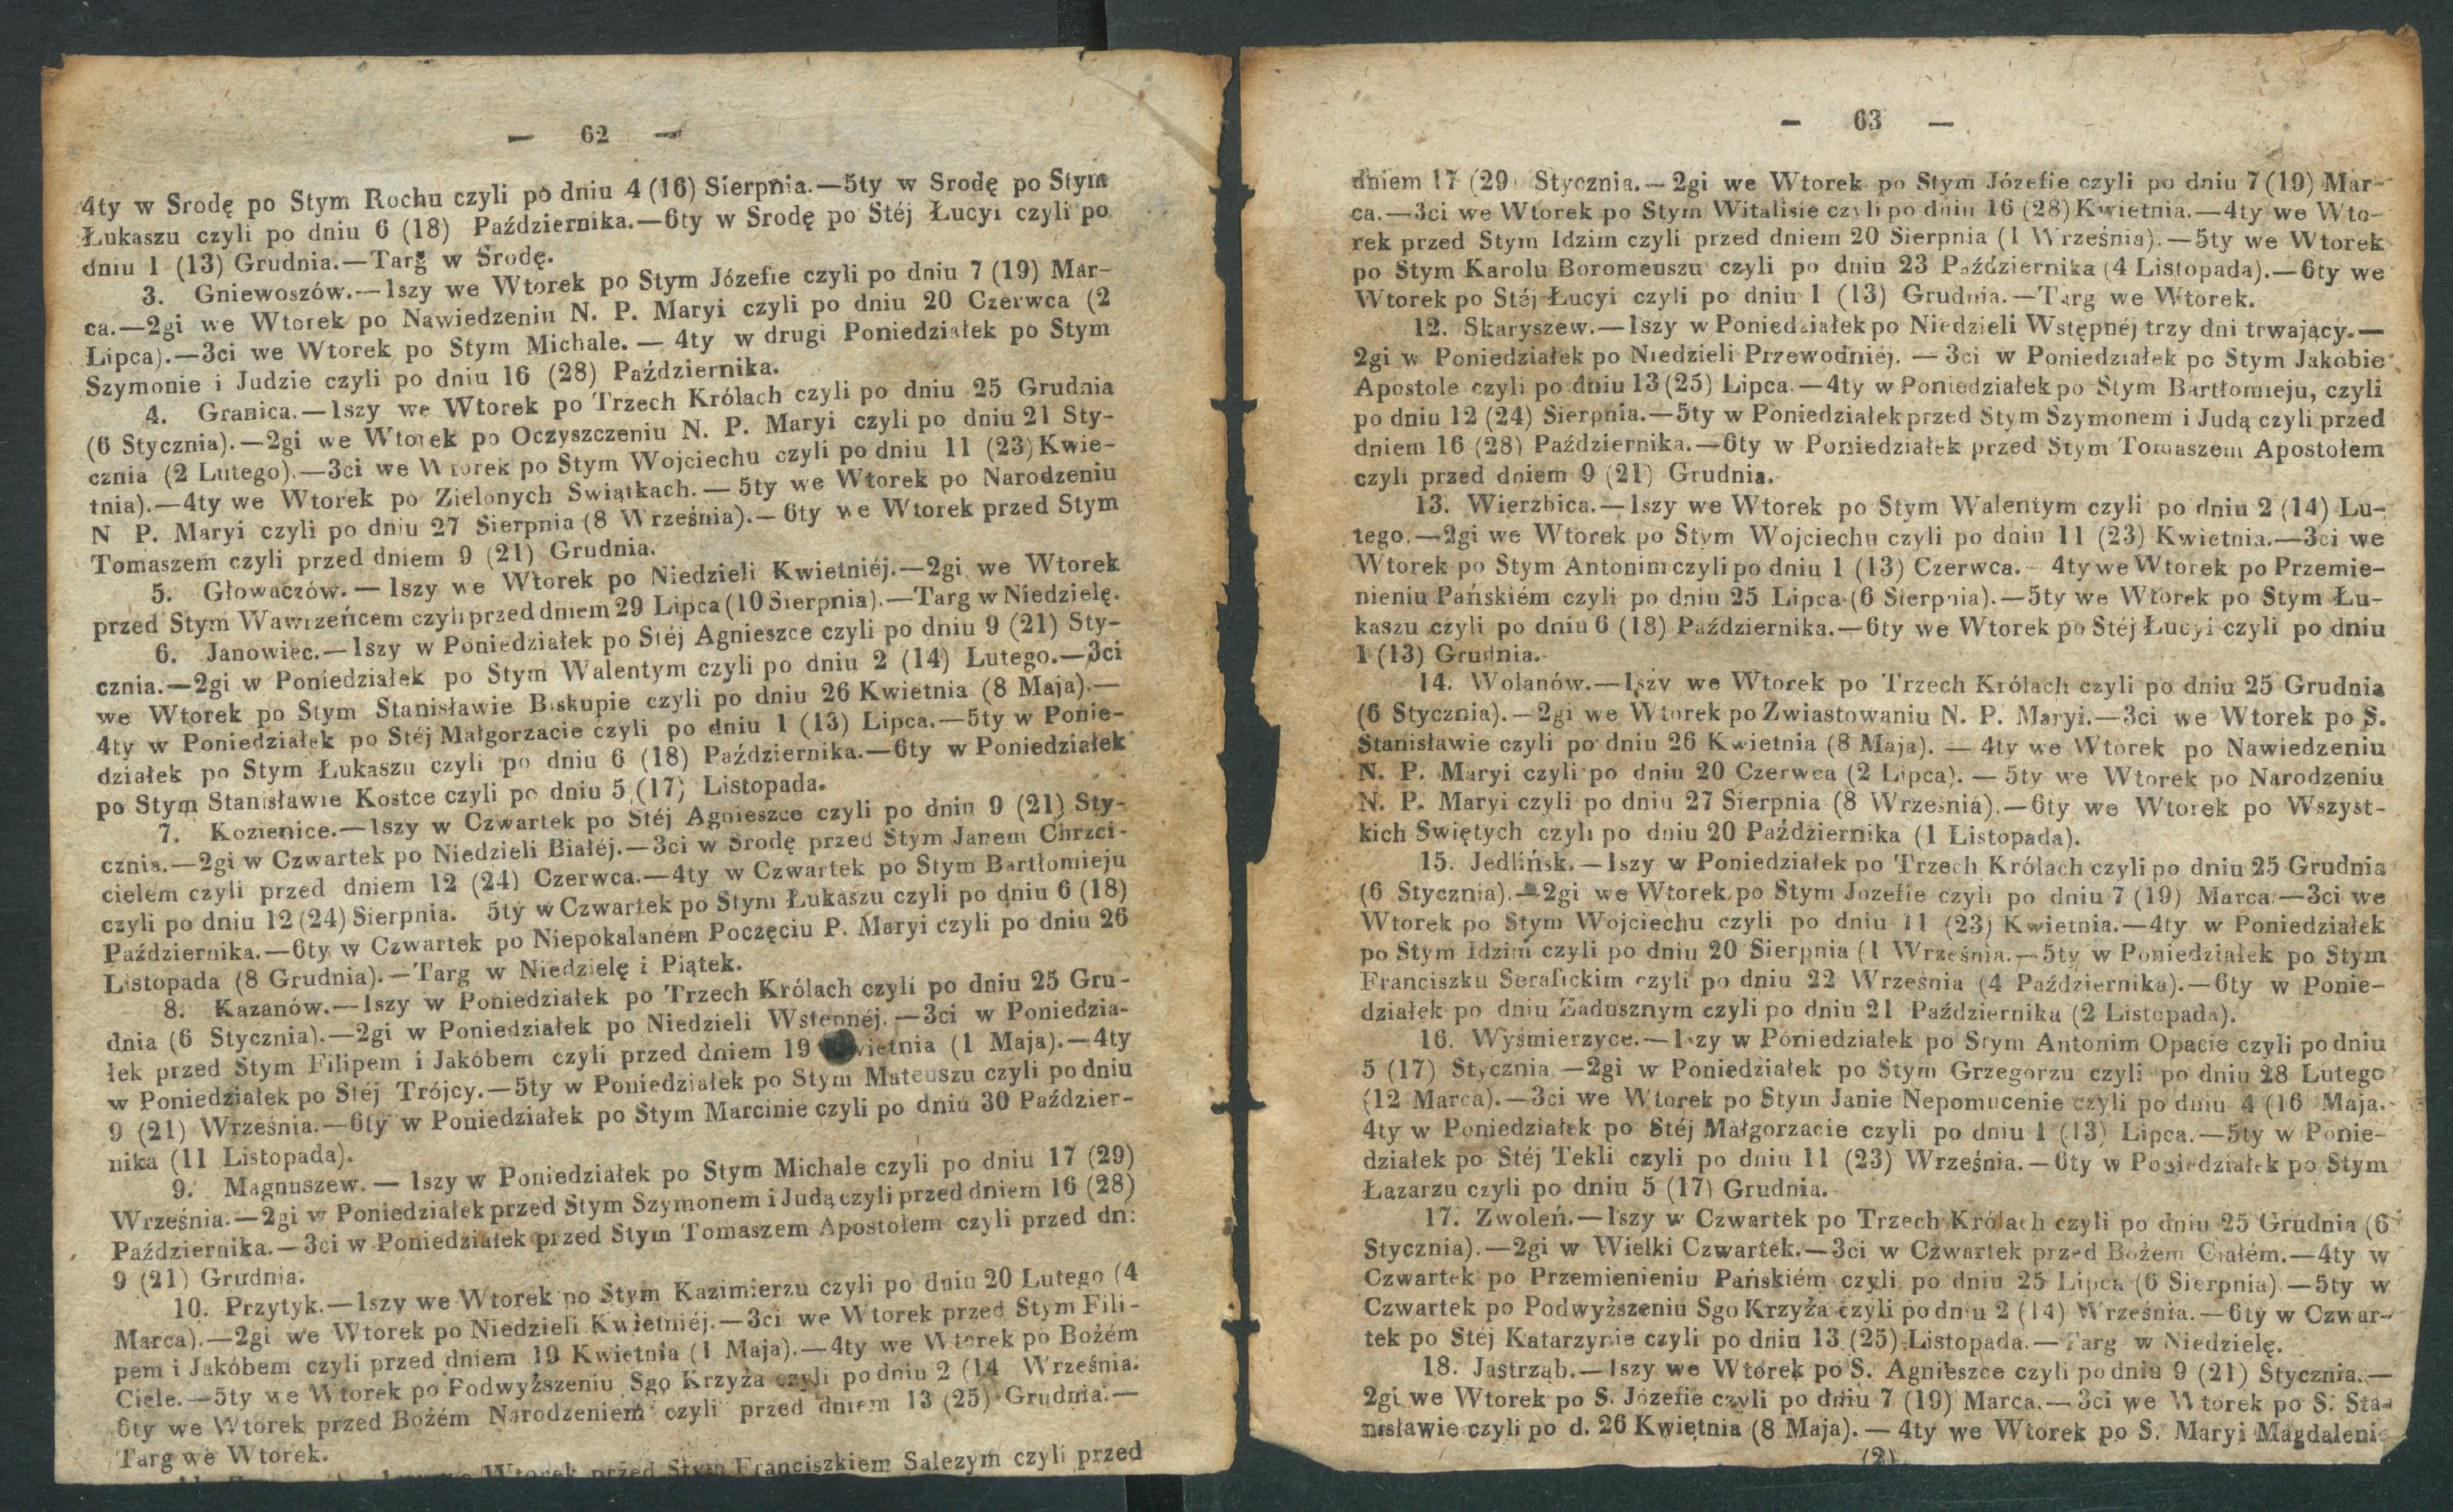 — 62 —
4ty w Srodę po Stym Rochu czyli po dniu 4 (16) Sierpnia.—5ty w Srodę po Stym
Łukaszu czyli po dniu 6 (18) Października.—6ty w Srodę po Stéj Łucyi czyli po
dniu 1 (13) Grudnia.—Targ w Srodę.
3. Gniewoszów.—1szy we Wtorek po Stym Józefie czyli po dniu 7 (19) Mar-
ca.—2gi we Wtorek po Nawiedzeniu N. P. Maryi czyli po dniu 20 Czerwca (2
Lipca).—3ci we Wtorek po Stym Michale. — 4ty w drugi Poniedziałek po Stym
Szymonie i Judzie czyli po dniu 16 (28) Października.
4. Granica.—1szy we Wtorek po Trzech Królach czyli po dniu 25 Grudnia
(6 Stycznia).—2gi we Wtorek po Oczyszczeniu N. P. Maryi czyli po dniu 21 Sty-
cznia (2 Lutego).—3ci we Wtorek po Stym Wojciechu czyli po dniu 11 (23) Kwie-
tnia).—4ty we Wtorek po Zielonych Swiątkach.—5ty we Wtorek po Narodzeniu
N P. Maryi czyli po dniu 27 Sierpnia (8 Września).—6ty we Wtorek przed Stym
Tomaszem czyli przed dniem 9 (21) Grudnia.
5. Głowaczów.—1szy we Wtorek po Niedzieli Kwietniéj.—2gi we Wtorek
przed Stym Wawrzeńcem czyli przed dniem 29 Lipca (10 Sierpnia).—Targ w Niedzielę.
6. Janowiec.—1szy w Poniedziałek po Stéj Agnieszce czyli po dniu 9 (21) Sty-
cznia.—2gi w Poniedziałek po Stym Walentym czyli po dniu 2 (14) Lutego.—3ci
we Wtorek po Stym Stanisławie Biskupie czyli po dniu 26 Kwietnia (8 Maja).—
4ty w Poniedziałek po Stéj Małgorzacie czyli po dniu 1 (13) Lipca.—5ty w Ponie-
działek po Stym Łukaszu czyli po dniu 6 (18) Października.—6ty w Poniedziałek
po Stym Stanisławie Kostce czyli po dniu 5 (17) Listopada.
7. Kozienice.—1szy w Czwartek po Stéj Agnieszce czyli po dniu 9 (21) Sty-
cznia.—2gi w Czwartek po Niedzieli Białéj.—3ci w Srodę przed Stym Janem Chrzci-
cielem czyli przed dniem 12 (24) Czerwca.—4ty w Czwartek po Stym Bartłomieju
czyli po dniu 12 (24) Sierpnia. 5ty w Czwartek po Stym Łukaszu czyli po dniu 6 (18)
Października.—6ty w Czwartek po Niepokalaném Poczęciu P. Maryi czyli po dniu 26
Listopada (8 Grudnia).—Targ w Niedzielę i Piątek.
8. Kazanów.—1szy w Poniedziałek po Trzech Królach czyli po dniu 25 Gru-
dnia (6 Stycznia).—2gi w Poniedziałek po Niedzieli Wstępnéj.—3ci w Poniedzia-
łek przed Stym Filipem i Jakóbem czyli przed dniem 19 Kwietnia (1 Maja).—4ty
w Poniedziałek po Stéj Trójcy.—5ty w Poniedziałek po Stym Mateuszu czyli po dniu
9 (21) Września.—6ty w Poniedziałek po Stym Marcinie czyli po dniu 30 Paździer-
nika (11 Listopada).
9. Magnuszew. — 1szy w Poniedziałek po Stym Michale czyli po dniu 17 (29)
Września.—2gi w Poniedziałek przed Stym Szymonem i Judą czyli przed dniem 16 (28)
Października.—3ci w Poniedziałek przed Stym Tomaszem Apostołem czyli przed dn:
9 (21) Grudnia.
10. Przytyk.—1szy we Wtorek po Stym Kazimierzu czyli po dniu 20 Lutego (4
Marca).—2gi we Wtorek po Niedzieli Kwietniéj.—3ci we Wtorek przed Stym Fili-
pem i Jakóbem czyli przed dniem 19 Kwietnia (1 Maja).—4ty we Wtorek po Bożém
Ciele.—5ty we Wtorek po Podwyższeniu Sgo Krzyża czyli po dniu 2 (14 Września.
6ty we Wtorek przed Bożém Narodzeniem czyli przed dniem 13 (25) Grudnia.—
Targ we Wtorek.
Wtorek przed Stym Franciszkiem Salezym czyli przed
— 63 —
dniem 17 (29) Stycznia.—2gi we Wtorek po Stym Józefie czyli po dniu 7 (19) Mar-
ca.—3ci we Wtorek po Stym Witalisie czyli po dniu 16 (28) Kwietnia.—4ty we Wto-
rek przed Stym Idzim czyli przed dniem 20 Sierpnia (1 Września).—5ty we Wtorek
po Stym Karolu Boromeuszu czyli po dniu 23 Października (4 Listopada).—6ty we
Wtorek po Stéj Łucyi czyli po dniu 1 (13) Grudnia.—Targ we Wtorek.
12. Skaryszew.—1szy w Poniedziałek po Niedzieli Wstępnéj trzy dni trwający.—
2gi w Poniedziałek po Niedzieli Przewodniéj. — 3ci w Poniedziałek po Stym Jakobie
Apostole czyli po dniu 13 (25) Lipca.—4ty w Poniedziałek po Stym Bartłomieju, czyli
po dniu 12 (24) Sierpnia.—5ty w Poniedziałek przed Stym Szymonem i Judą czyli przed
dniem 16 (28) Października.—6ty w Poniedziałek przed Stym Tomaszem Apostołem
czyli przed dniem 9 (21) Grudnia.
13. Wierzbica.—1szy we Wtorek po Stym Walentym czyli po dniu 2 (14) Lu-
tego.—2gi we Wtorek po Stym Wojciechu czyli po dniu 11 (23) Kwietnia.—3ci we
Wtorek po Stym Antonim czyli po dniu 1 (13) Czerwca.— 4ty we Wtorek po Przemie-
nieniu Pańskiém czyli po dniu 25 Lipca (6 Sierpnia).—5ty we Wtorek po Stym Łu-
kaszu czyli po dniu 6 (18) Października.—6ty we Wtorek po Stéj Łucyi czyli po dniu
1 (13) Grudnia.
14. Wolanów.—1szy we Wtorek po Trzech Królach czyli po dniu 25 Grudnia
(6 Stycznia).—2gi we Wtorek po Zwiastowaniu N. P. Maryi.—3ci we Wtorek po S.
Stanisławie czyli po dniu 26 Kwietnia (8 Maja). — 4ty we Wtorek po Nawiedzeniu
N. P. Maryi czyli po dniu 20 Czerwca (2 Lipca). — 5ty we Wtorek po Narodzeniu
N. P. Maryi czyli po dniu 27 Sierpnia (8 Września).—6ty we Wtorek po Wszyst-
kich Swiętych czyli po dniu 20 Października (1 Listopada).
15. Jedlińsk.—1szy w Poniedziałek po Trzech Królach czyli po dniu 25 Grudnia
(6 Stycznia).—2gi we Wtorek po Stym Jozefie czyli po dniu 7 (19) Marca.—3ci we
Wtorek po Stym Wojciechu czyli po dniu 11 (23) Kwietnia.—4ty w Poniedziałek
po Stym Idzim czyli po dniu 20 Sierpnia (1 Września.—5ty w Poniedziałek po Stym
Franciszku Serafickim czyli po dniu 22 Września (4 Października).—6ty w Ponie-
działek po dniu Zadusznym czyli po dniu 21 Października (2 Listopada).
16. Wyśmierzyce.—1szy w Poniedziałek po Stym Antonim Opacie czyli po dniu
5 (17) Stycznia —2gi w Poniedziałek po Stym Grzegorzu czyli po dniu 28 Lutego
(12 Marca).—3ci we Wtorek po Stym Janie Nepomucenie czyli po dniu 4 (16 Maja.
4ty w Poniedziałek po Stéj Małgorzacie czyli po dniu 1 (13) Lipca.—5ty w Ponie-
działek po Stéj Tekli czyli po dniu 11 (23) Września.—6ty w Poniedziałek po Stym
Łazarzu czyli po dniu 5 (17) Grudnia.
17. Zwoleń.—1szy w Czwartek po Trzech Królach czyli po dniu 25 Grudnia (6
Stycznia).—2gi w Wielki Czwartek.—3ci w Czwartek przed Bożem Ciałém.—4ty w
Czwartek po Przemienieniu Pańskiém czyli po dniu 25 Lipca (6 Sierpnia).—5ty w
Czwartek po Podwyższeniu Sgo Krzyża czyli po dniu 2 (14) Września.—6ty w Czwar-
tek po Stéj Katarzynie czyli po dniu 13 (25) Listopada.—Targ w Niedzielę.
18. Jastrząb.—1szy we Wtorek po S. Agnieszce czyli po dniu 9 (21) Stycznia.—
2gi we Wtorek po S. Józefie czyli po dniu 7 (19) Marca.—3ci we Wtorek po S. Sta-
nisławie czyli po d. 26 Kwietnia (8 Maja).—4ty we Wtorek po S. Maryi Magdaleni-
(2)